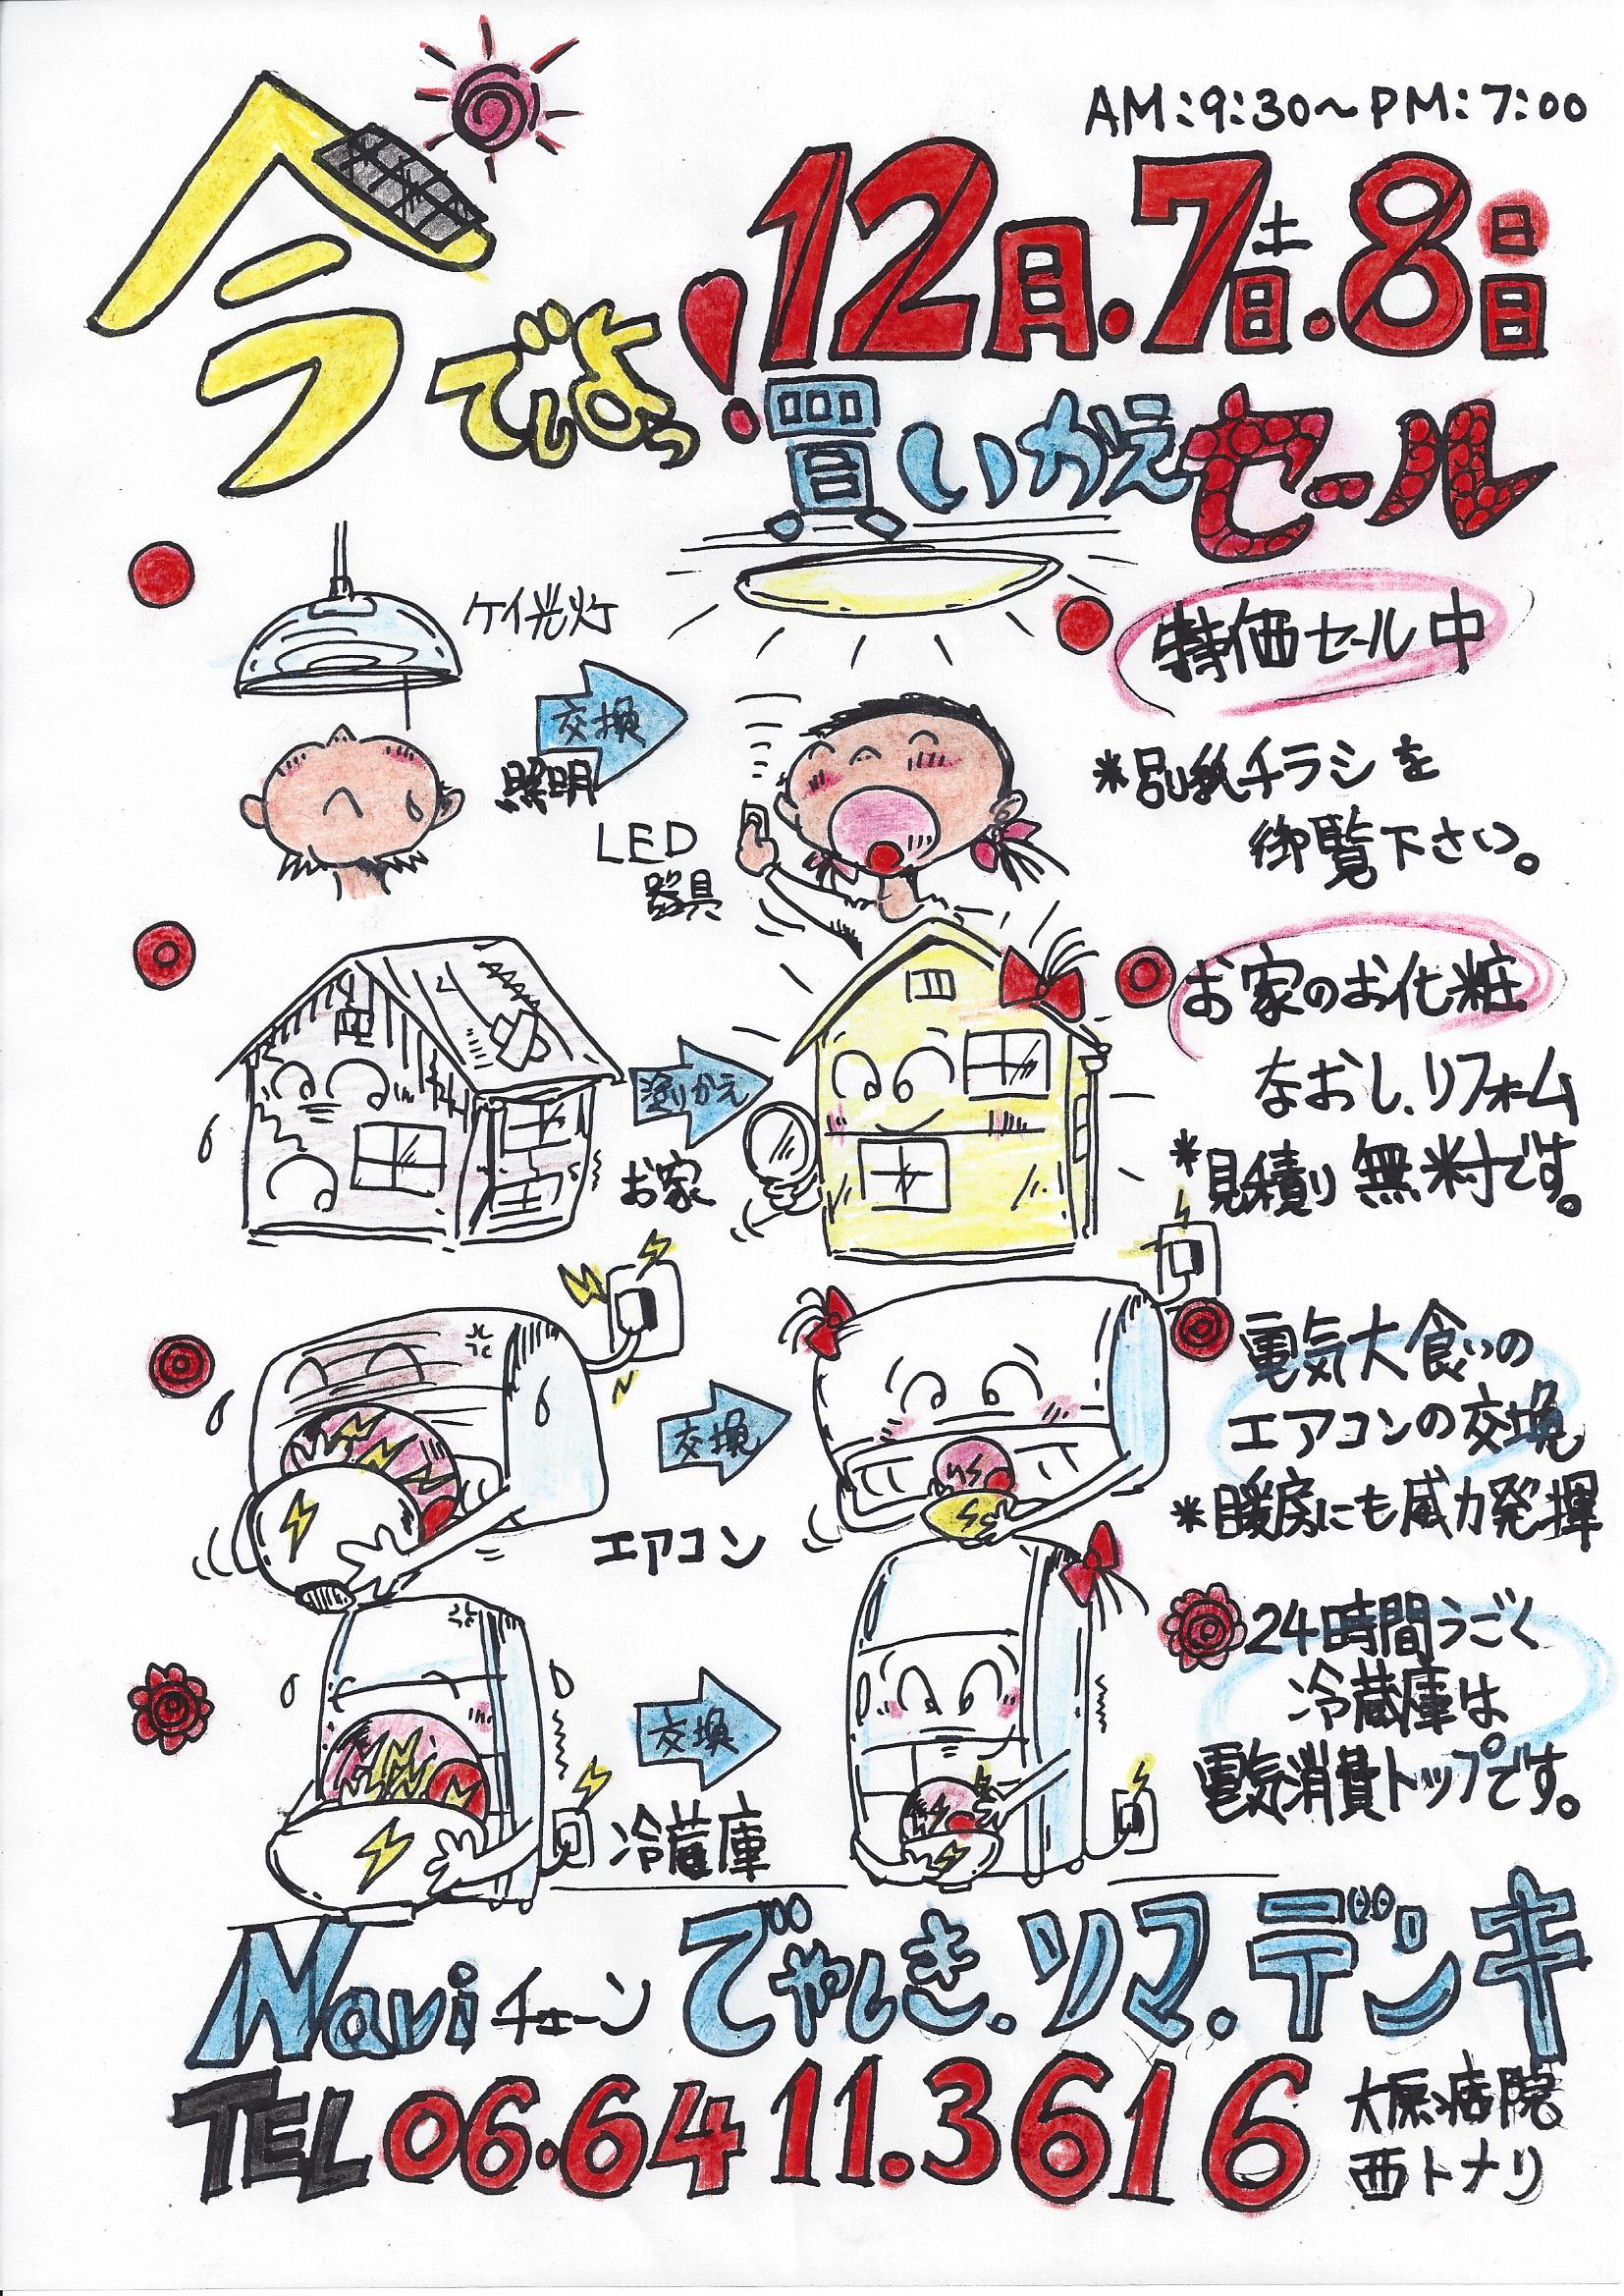 AM:9:30〜PM:7:00
今でしょっ!
12月.7土日.8日日
買いかえセール
ケイ光灯
交換
照明
LED
器具
特価セール中
*別紙チラシを
御覧下さい。
塗りかえ
お家
お家のお化粧
なおし.リフォーム
*見積り無料です。
交換
エアコン
電気大食いの
エアコンの交換
*暖房にも威力発揮
交換
冷蔵庫
24時間うごく
冷蔵庫は
電気消費トップです。
Naviチェーン でやしき.リマ.デンキ
TEL 06.6411.3616
大原病院
西トナリ